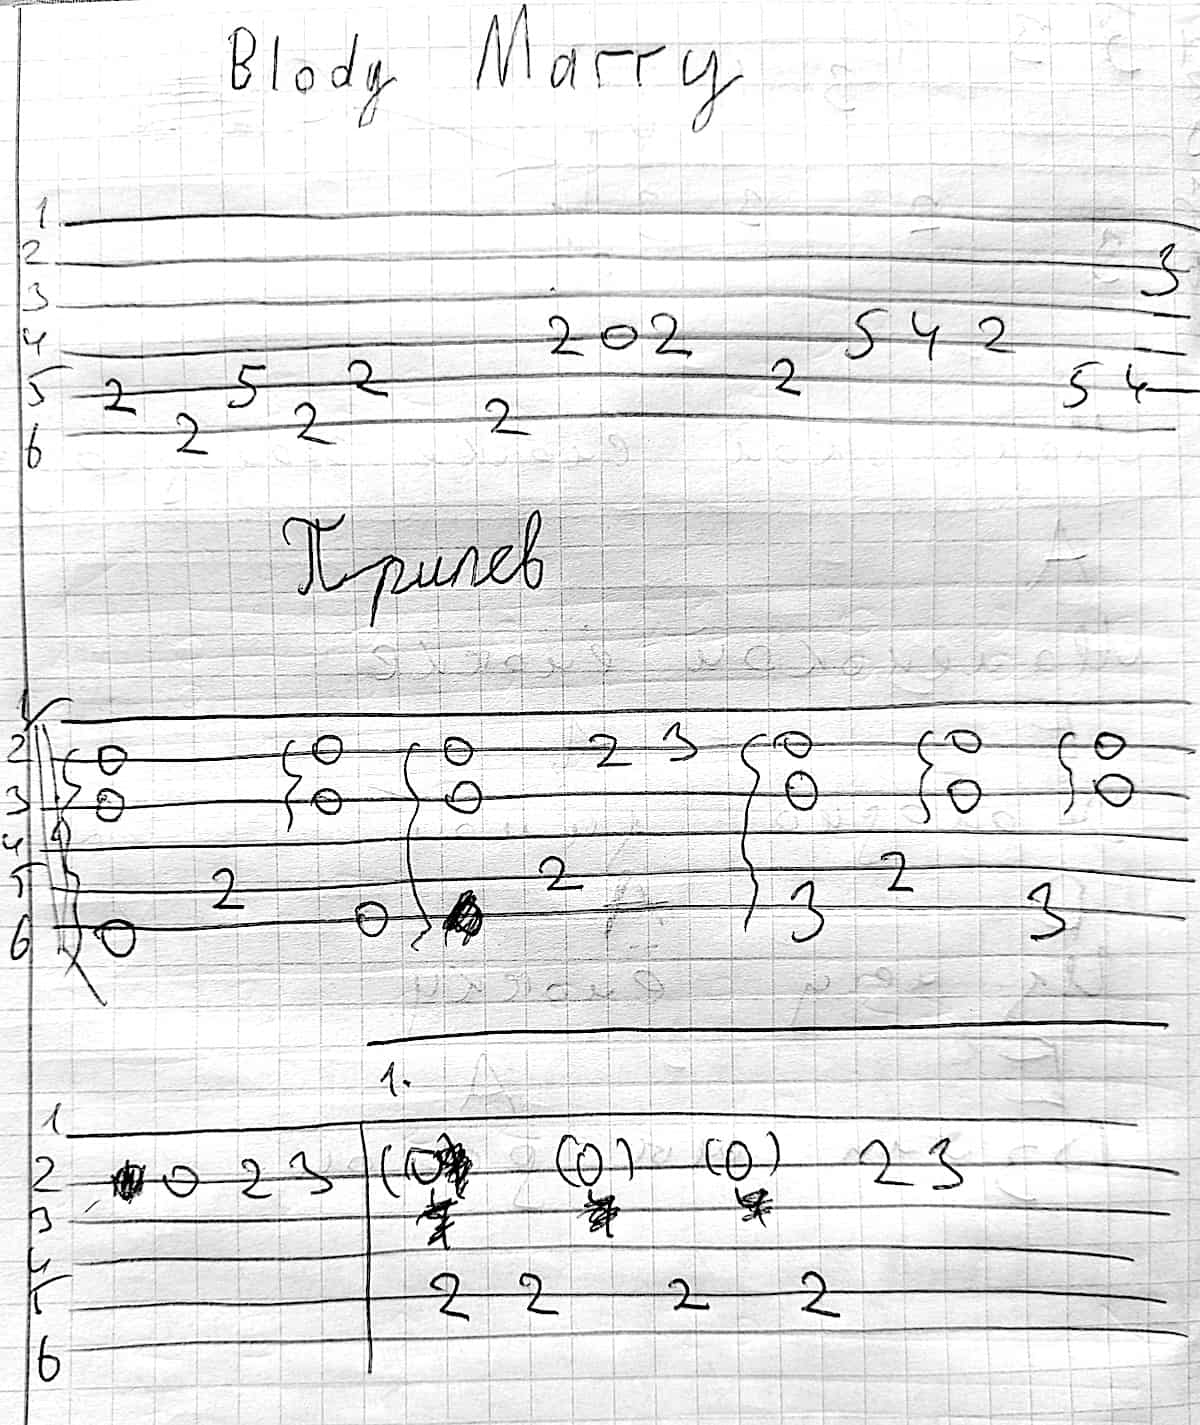 Blody Marry
1
2 3
3
4 2 0 2 5 4 2
5 2 5 2 2 5 4
6 2 2 2
Припев
1
2 0 0 0 2 3 0 0 0
3 0 0 0 0 0 0
4
5 2 2 2
6 0 0 3 3
1.
1
2 0 2 3 (0 (0) (0) 2 3
3
4
5 2 2 2 2
6